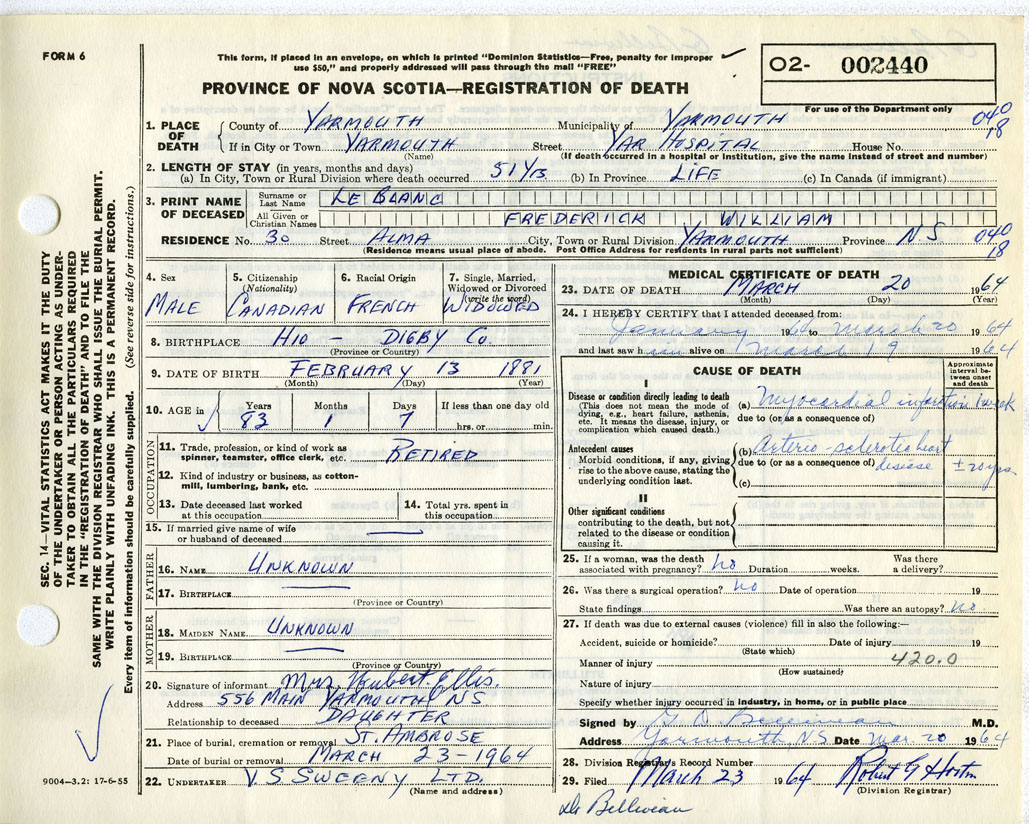 FORM 6
This form, if placed in an envelope, on which is printed "Dominion Statistics—Free, penalty for improper
use $50," and properly addressed will pass through the mail "FREE"
O2- 002440
For use of the Department only
PROVINCE OF NOVA SCOTIA—REGISTRATION OF DEATH
1. PLACE OF DEATH
County of YARMOUTH Municipality of YARMOUTH 040
If in City or Town YARMOUTH Street YAR HOSPITAL House No. 18
(Name) (If death occurred in a hospital or institution, give the name instead of street and number)
2. LENGTH OF STAY (in years, months and days)
(a) In City, Town or Rural Division where death occurred 51 YRS (b) In Province LIFE (c) In Canada (if immigrant)
3. PRINT NAME OF DECEASED
Surname or Last Name LE BLANC
All Given or Christian Names FREDERICK WILLIAM
RESIDENCE No. 30 Street ALMA City, Town or Rural Division YARMOUTH Province N S 040
(Residence means usual place of abode. Post Office Address for residents in rural parts not sufficient) 18
4. Sex MALE
5. Citizenship (Nationality) CANADIAN
6. Racial Origin FRENCH
7. Single, Married, Widowed or Divorced (write the word) WIDOWED
8. BIRTHPLACE HIO — DIGBY Co.
(Province or Country)
9. DATE OF BIRTH FEBRUARY 13 1881
(Month) (Day) (Year)
10. AGE in Years 83 Months 1 Days 7 If less than one day old hrs. or min.
OCCUPATION
11. Trade, profession, or kind of work as
spinner, teamster, office clerk, etc. RETIRED
12. Kind of industry or business, as cotton-
mill, lumbering, bank, etc.
13. Date deceased last worked
at this occupation
14. Total yrs. spent in
this occupation
15. If married give name of wife
or husband of deceased
FATHER
16. NAME UNKNOWN
17. BIRTHPLACE
(Province or Country)
MOTHER
18. MAIDEN NAME UNKNOWN
19. BIRTHPLACE
(Province or Country)
20. Signature of informant Mrs. Hubert Ellis.
Address 556 MAIN YARMOUTH NS
Relationship to deceased DAUGHTER
21. Place of burial, cremation or removal ST. AMBROSE
Date of burial or removal MARCH 23-1964
22. UNDERTAKER V. S. SWEENY LTD.
(Name and address)
MEDICAL CERTIFICATE OF DEATH
23. DATE OF DEATH MARCH 20 1964
(Month) (Day) (Year)
24. I HEREBY CERTIFY that I attended deceased from:
January 19 to March 20 1964
and last saw him alive on March 19 1964
CAUSE OF DEATH
Approximate interval between onset and death
I
Disease or condition directly leading to death
(This does not mean the mode of
dying, e.g., heart failure, asthenia,
etc. It means the disease, injury, or
complication which caused death.)
(a) Myocardial infarction 1 week
due to (or as a consequence of)
Antecedent causes
Morbid conditions, if any, giving
rise to the above cause, stating the
underlying condition last.
(b) Arterio-sclerotic heart
due to (or as a consequence of) disease ± 20 yrs.
(c)
II
Other significant conditions
contributing to the death, but not
related to the disease or condition
causing it.
25. If a woman, was the death
associated with pregnancy? no Duration weeks. Was there
a delivery?
26. Was there a surgical operation? no Date of operation 19
State findings Was there an autopsy? no
27. If death was due to external causes (violence) fill in also the following:—
Accident, suicide or homicide? Date of injury 19
(State which)
Manner of injury 420.0
(How sustained)
Nature of injury
Specify whether injury occurred in industry, in home, or in public place
Signed by G D Belliveau M.D.
Address Yarmouth, N.S. Date Mar. 20 1964
28. Division Registrar's Record Number
29. Filed March 23 1964 Robert G Horton
(Division Registrar)
Dr Belliveau
SEC. 14—VITAL STATISTICS ACT MAKES IT THE DUTY
OF THE UNDERTAKER OR PERSON ACTING AS UNDER-
TAKER TO OBTAIN ALL THE PARTICULARS REQUIRED
IN THE "REGISTRATION OF DEATH" AND TO FILE THE
SAME WITH THE DIVISION REGISTRAR WHO SHALL ISSUE THE BURIAL PERMIT.
WRITE PLAINLY WITH UNFADING INK. THIS IS A PERMANENT RECORD.
Every item of information should be carefully supplied. (See reverse side for instructions.)
9004-3.2: 17-6-55